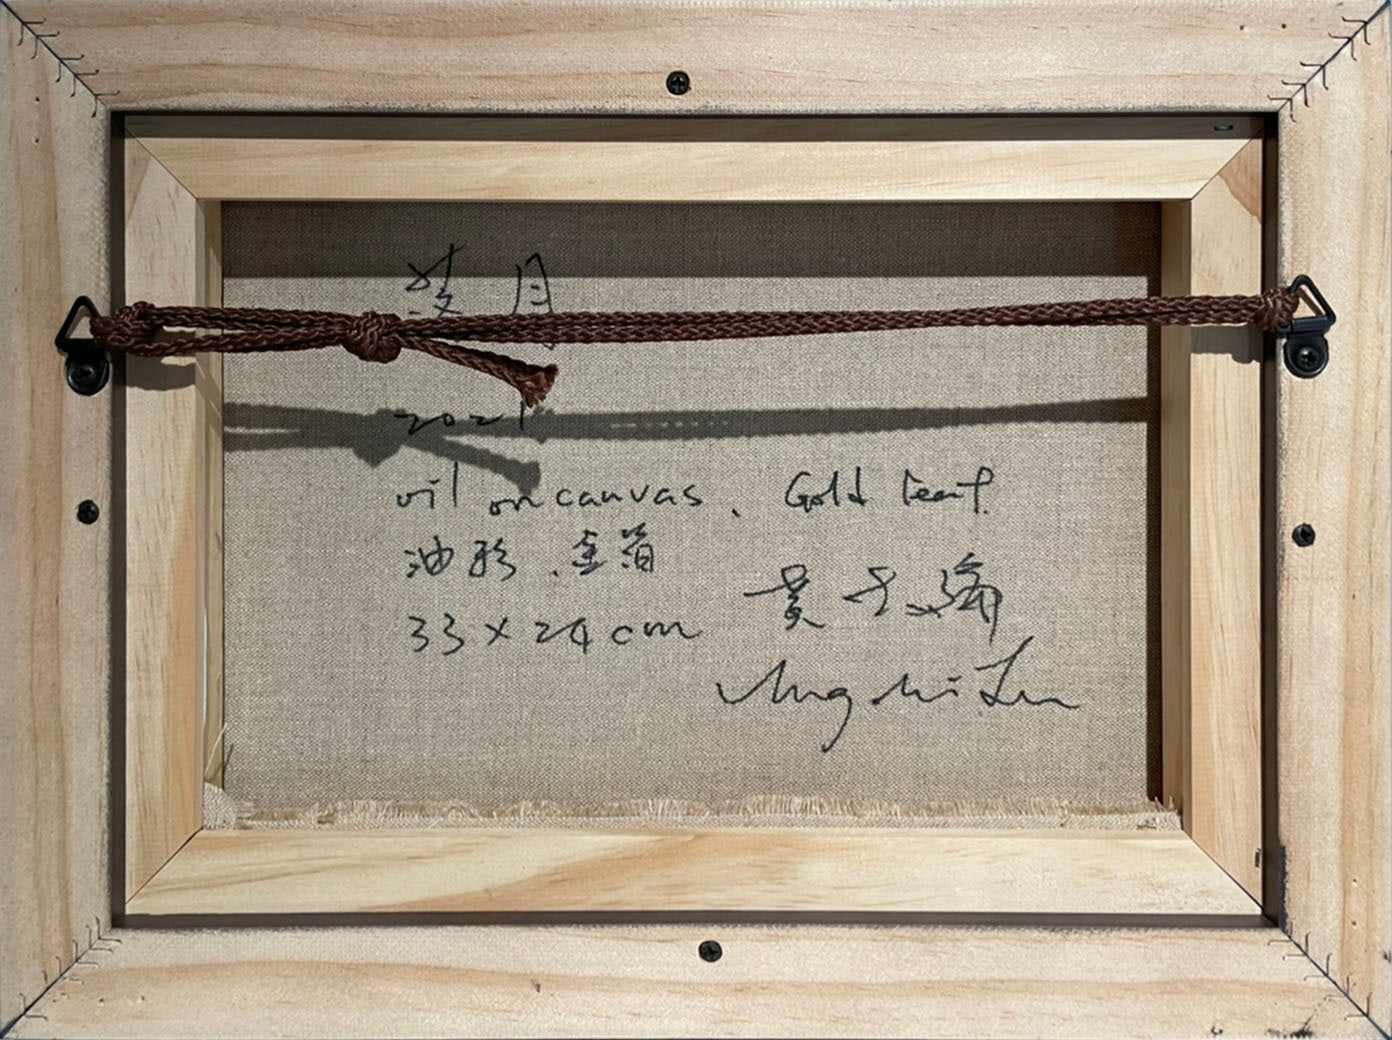 月
2021
oil on canvas、 Gold leaf.
油彩、金箔
黄
33 x 24 cm